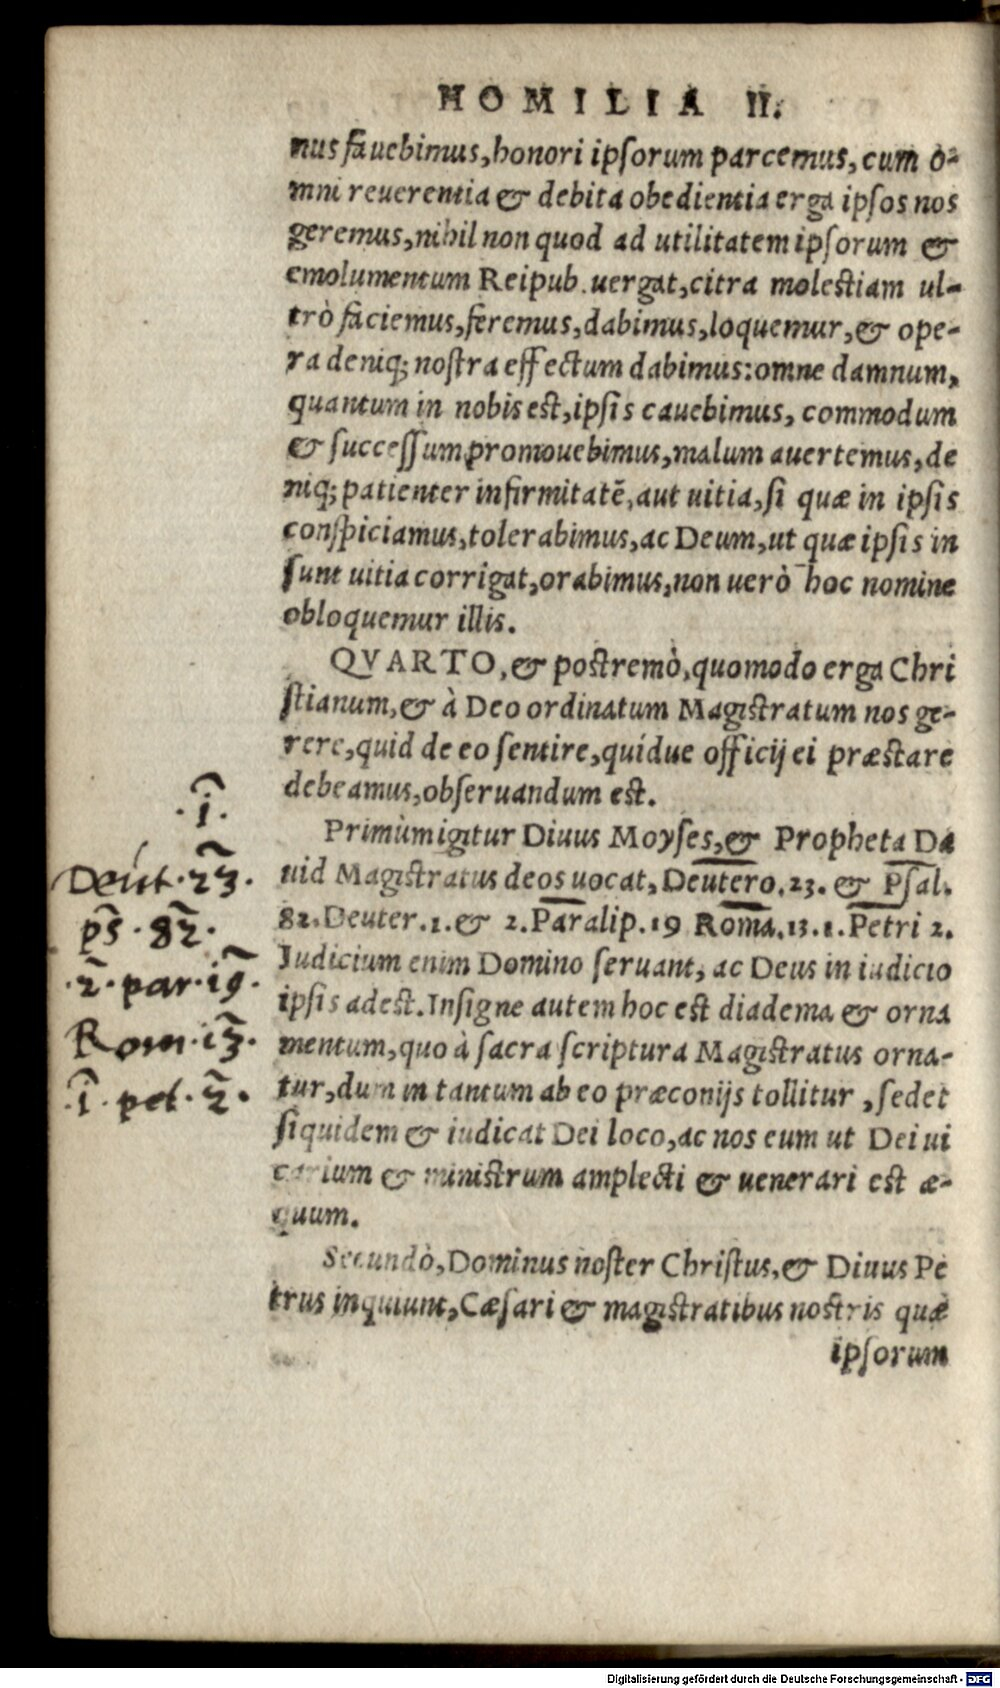 HOMILIA II.
nus fauebimus, honori ipſorum parcemus, cum o-
mni reuerentia & debita obedientia erga ipſos nos
geremus, nihil non quod ad utilitatem ipſorum &
emolumentum Reipub. uergat, citra moleſtiam ul-
trò faciemus, feremus, dabimus, loquemur, & ope-
ra deniq; noſtra effectum dabimus: omne damnum,
quantum in nobis eſt, ipſis cauebimus, commodum
& ſucceſſum promouebimus, malum auertemus, de
niq; patienter infirmitatē, aut uitia, ſi quæ in ipſis
conſpiciamus, tolerabimus, ac Deum, ut quæ ipſis in
ſunt uitia corrigat, orabimus, non uerò hoc nomine
obloquemur illis.
QVARTO, & poſtremò, quomodo erga Chri
ſtianum, & à Deo ordinatum Magiſtratum nos ge-
rere, quid de eo ſentire, quidue officij ei præſtare
debeamus, obſeruandum eſt.
Primùm igitur Diuus Moyſes, & Propheta Da
uid Magiſtratus deos uocat, Deutero. 23. & Pſal.
82. Deuter. 1. & 2. Paralip. 19 Roma. 13. 1. Petri 2.
Iudicium enim Domino ſeruant, ac Deus in iudicio
ipſis adeſt. Inſigne autem hoc eſt diadema & orna
mentum, quo à ſacra ſcriptura Magiſtratus orna-
tur, dum in tantum ab eo præconijs tollitur, ſedet
ſiquidem & iudicat Dei loco, ac nos eum ut Dei ui
carium & miniſtrum amplecti & uenerari eſt æ-
quum.
Secundò, Dominus noſter Chriſtus, & Diuus Pe
trus inquiunt, Cæſari & magiſtratibus noſtris quæ
ipſorum
.i.
Deut. 23.
ps. 82.
.2. par. 19.
Rom. 13.
.1. pet. 2.
Digitalisierung gefördert durch die Deutsche Forschungsgemeinschaft - DFG